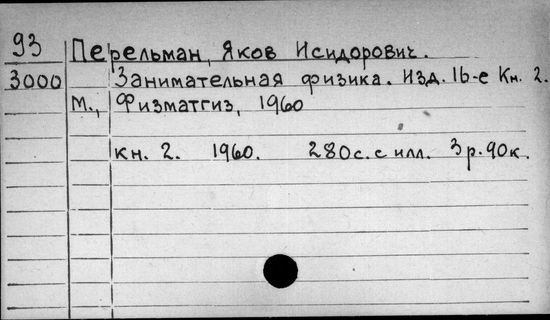 93
Перельман, Яков Исидорович.
3000 Занимательная физика. Изд. 16-е Кн. 2.
М., Физматгиз, 1960
кн. 2. 1960. 280с. с илл. 3р. 90к.